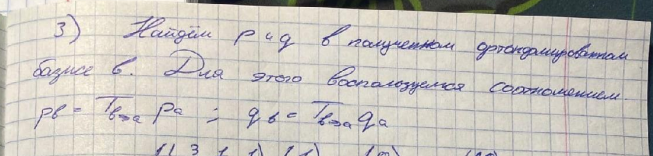 3) Найдём p и q в полученном ортонормированном
базисе b. Для этого воспользуемся соотношением.
p_b = T_{b→a} p_a ; q_b = T_{b→a} q_a